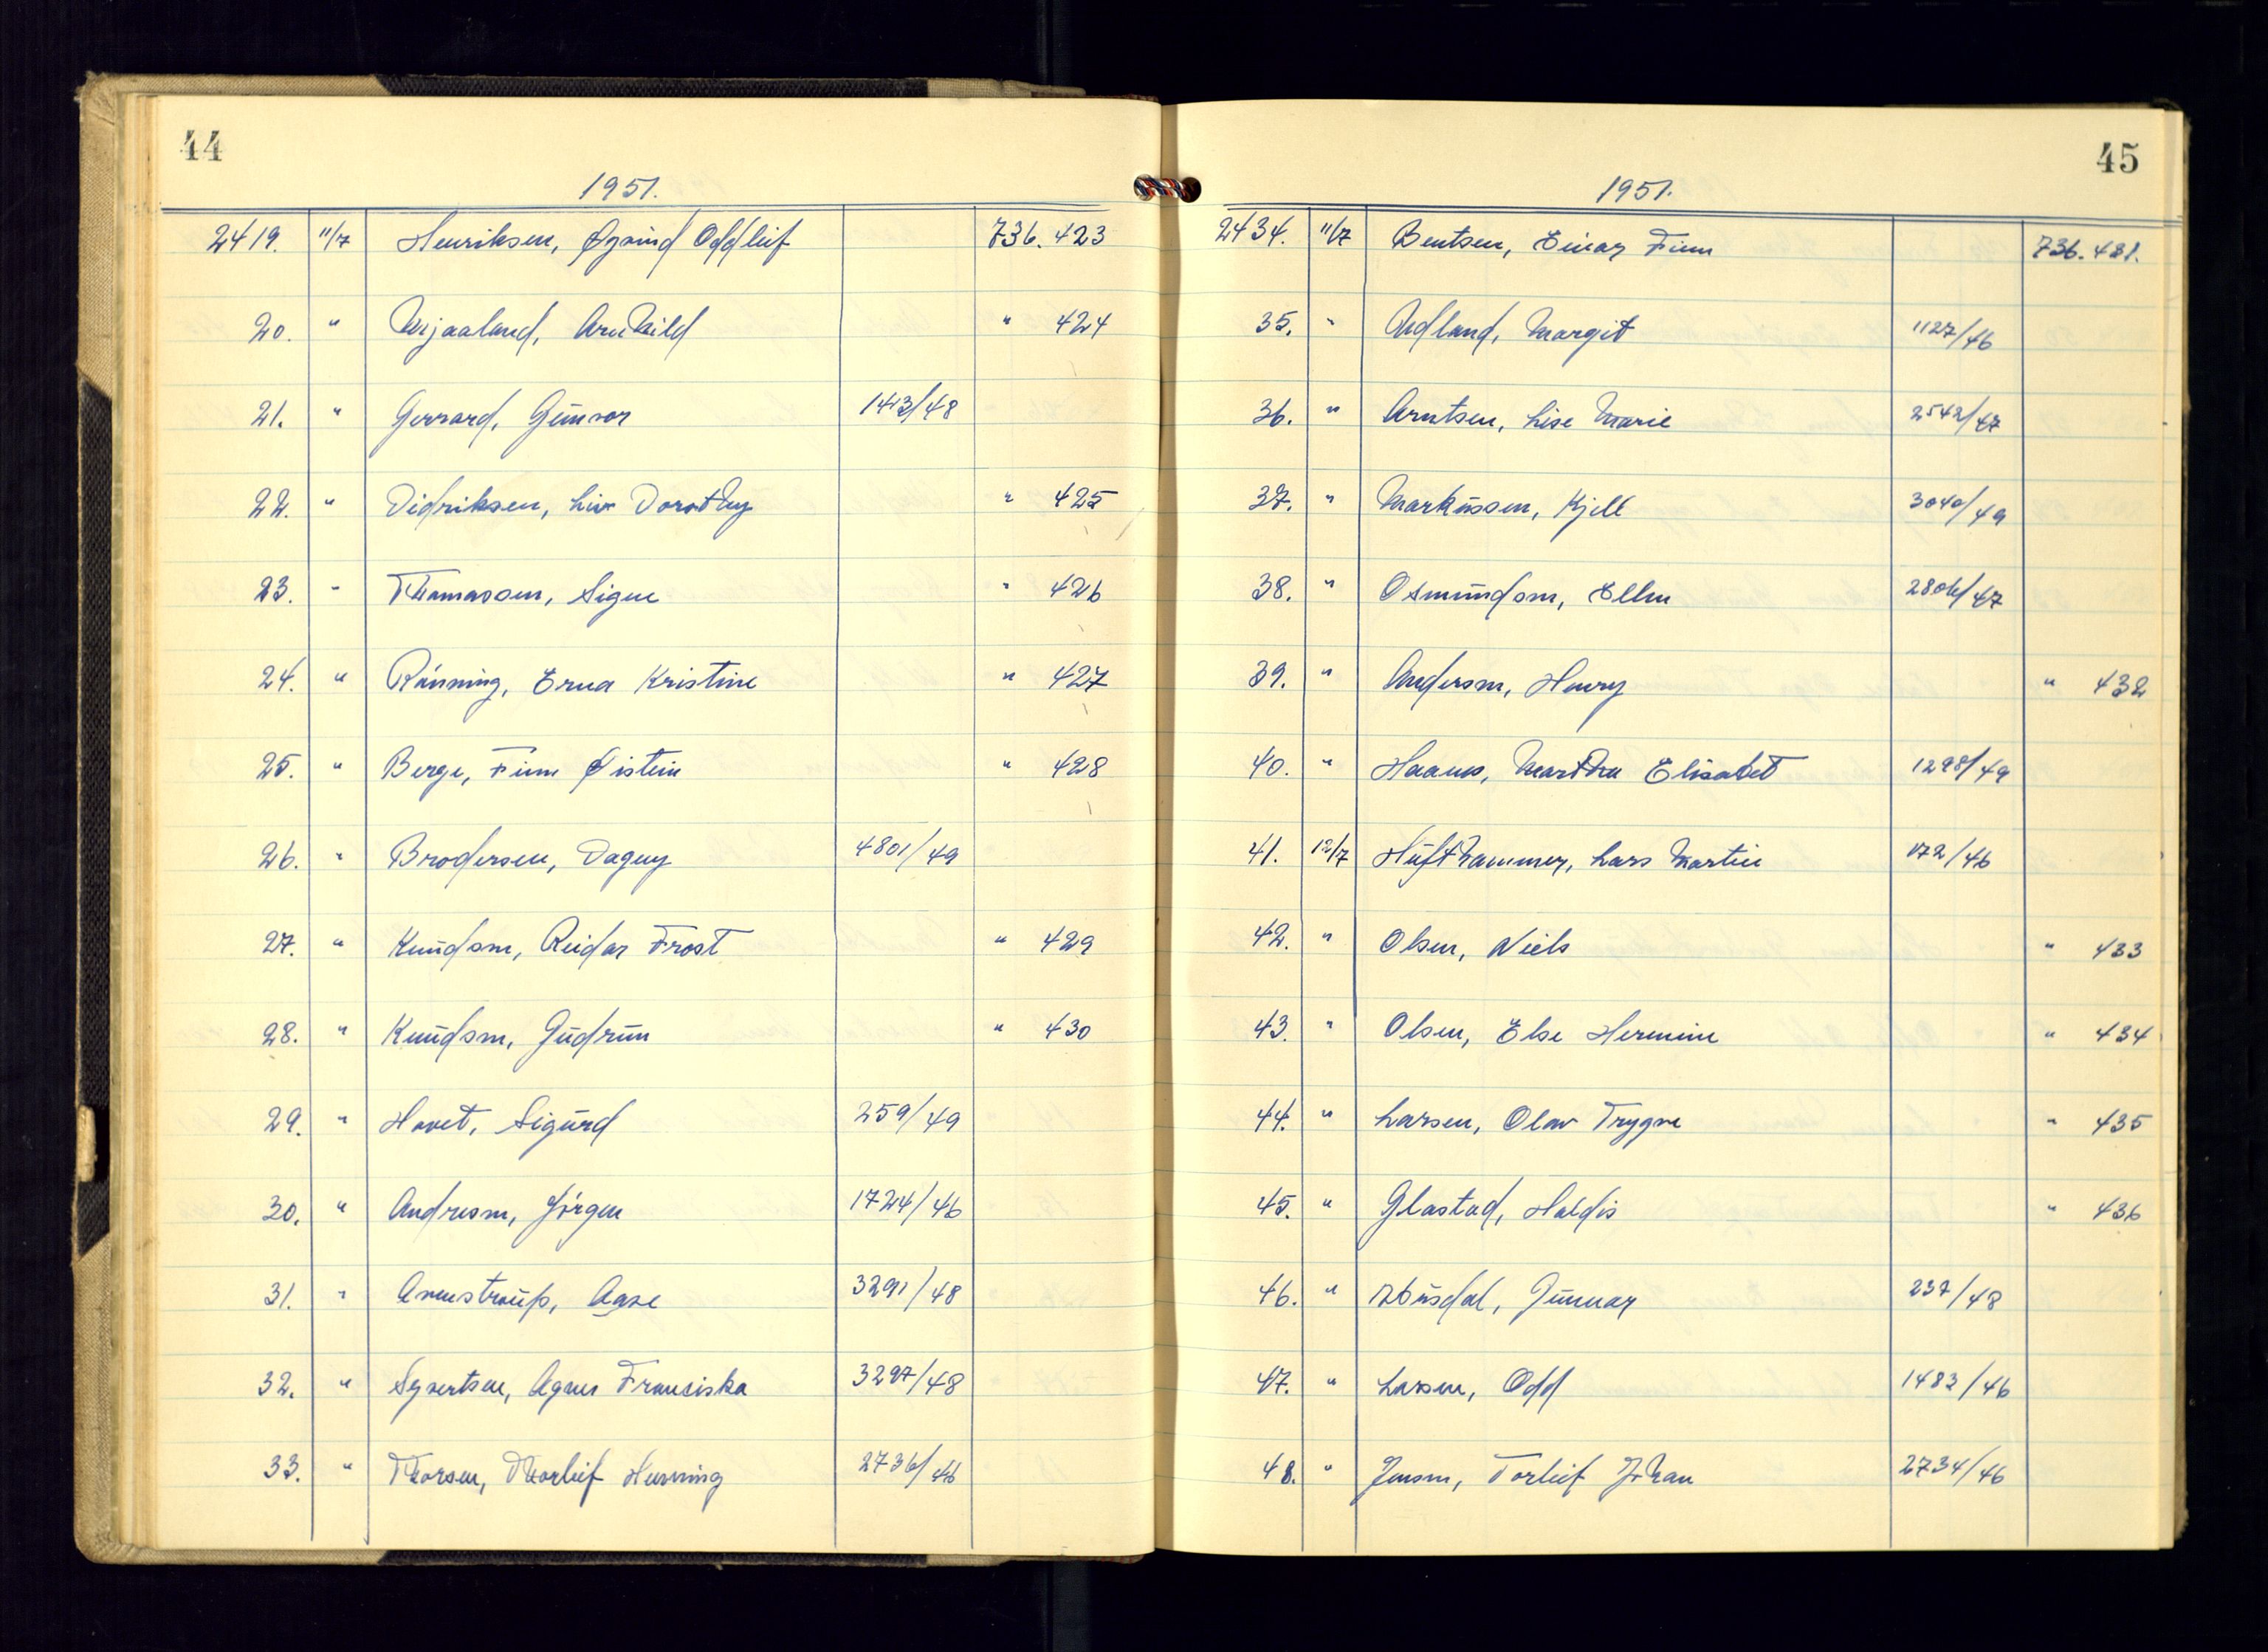 44
1951.
2419. 11/7 Henriksen, Øyvind Oddleif 736.423
20. " Mjaaland, Arnhild " 424
21. " Gerrard, Gunvor 1413/48
22. " Didriksen, Liv Dorothy " 425
23. " Thomassen, Signe " 426
24. " Rönning, Erna Kristine " 427
25. " Berge, Finn Øistein " 428
26. " Brodersen, Dagny 4801/49
27. " Knudsen, Reidar Frost " 429
28. " Knudsen, Gudrun " 430
29. " Hovet, Sigurd 259/49
30. " Andresen, Jörgen 1724/46
31. " Avenstroup, Aase 3291/48
32. " Syvertsen, Agnes Fransiska 3297/48
33. " Thorsen, Thorleif Henning 2736/46
45
1951.
2434. 11/7 Bentsen, Einar Finn 736.431.
35. " Adland, Margit 1127/46
36. " Arntsen, Lise Marie 2542/47
37. " Markussen, Kjell 3040/49
38. " Osmundsen, Ellen 2806/47
39. " Andersen, Henry " 432
40. " Haanes, Martha Elisabet 1298/49
41. 12/7 Hufthammer, Lars Martin 172/46
42. " Olsen, Niels " 433
43. " Olsen, Else Hermine " 434
44. " Larsen, Olav Trygve " 435
45. " Glastad, Haldis " 436
46. " Gunnar 237/48
47. " Larsen, Odd 1483/46
48. " Jensen, Torleif Johan 2734/46